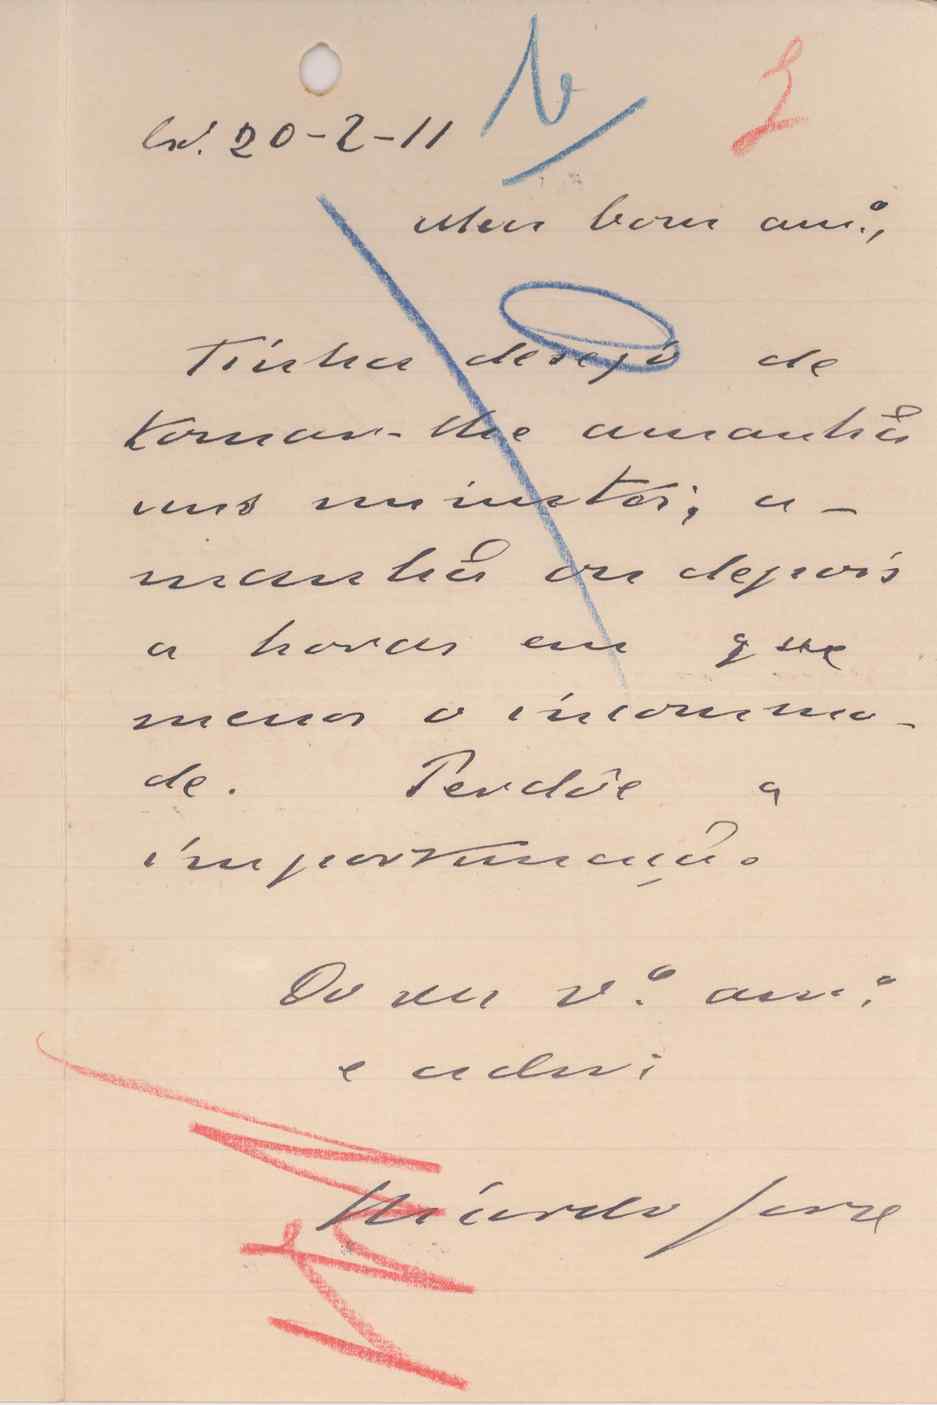 20-2-11
Meu bom am.º,
Tinha desejo de
tomar-lhe amanhã
uns minutos; a-
manhã ou depois
a horas em que
menos o incommo-
de. Perdôe a
importunação.
Do seu v.º am.º
e adm.
Ricardo Jorge